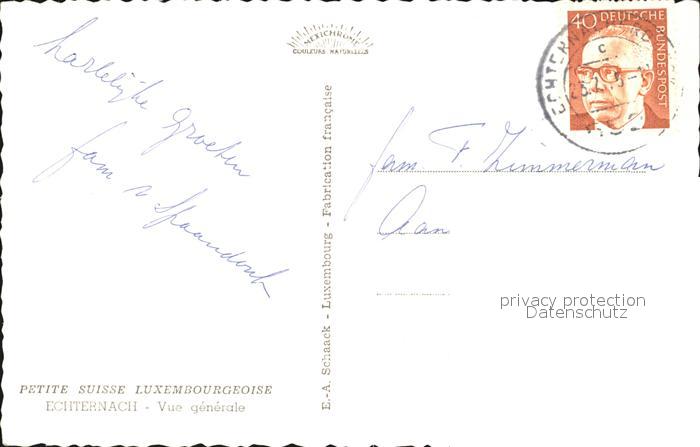 MEXICHROME
COULEURS NATURELLES
40 DEUTSCHE
BUNDESPOST
ECHTERNACH
hartelijke groeten
fam v. Spaandonk
fam. F Zimmerman
Aan
E.-A. Schaack - Luxembourg - Fabrication française
privacy protection
Datenschutz
PETITE SUISSE LUXEMBOURGEOISE
ECHTERNACH - Vue générale